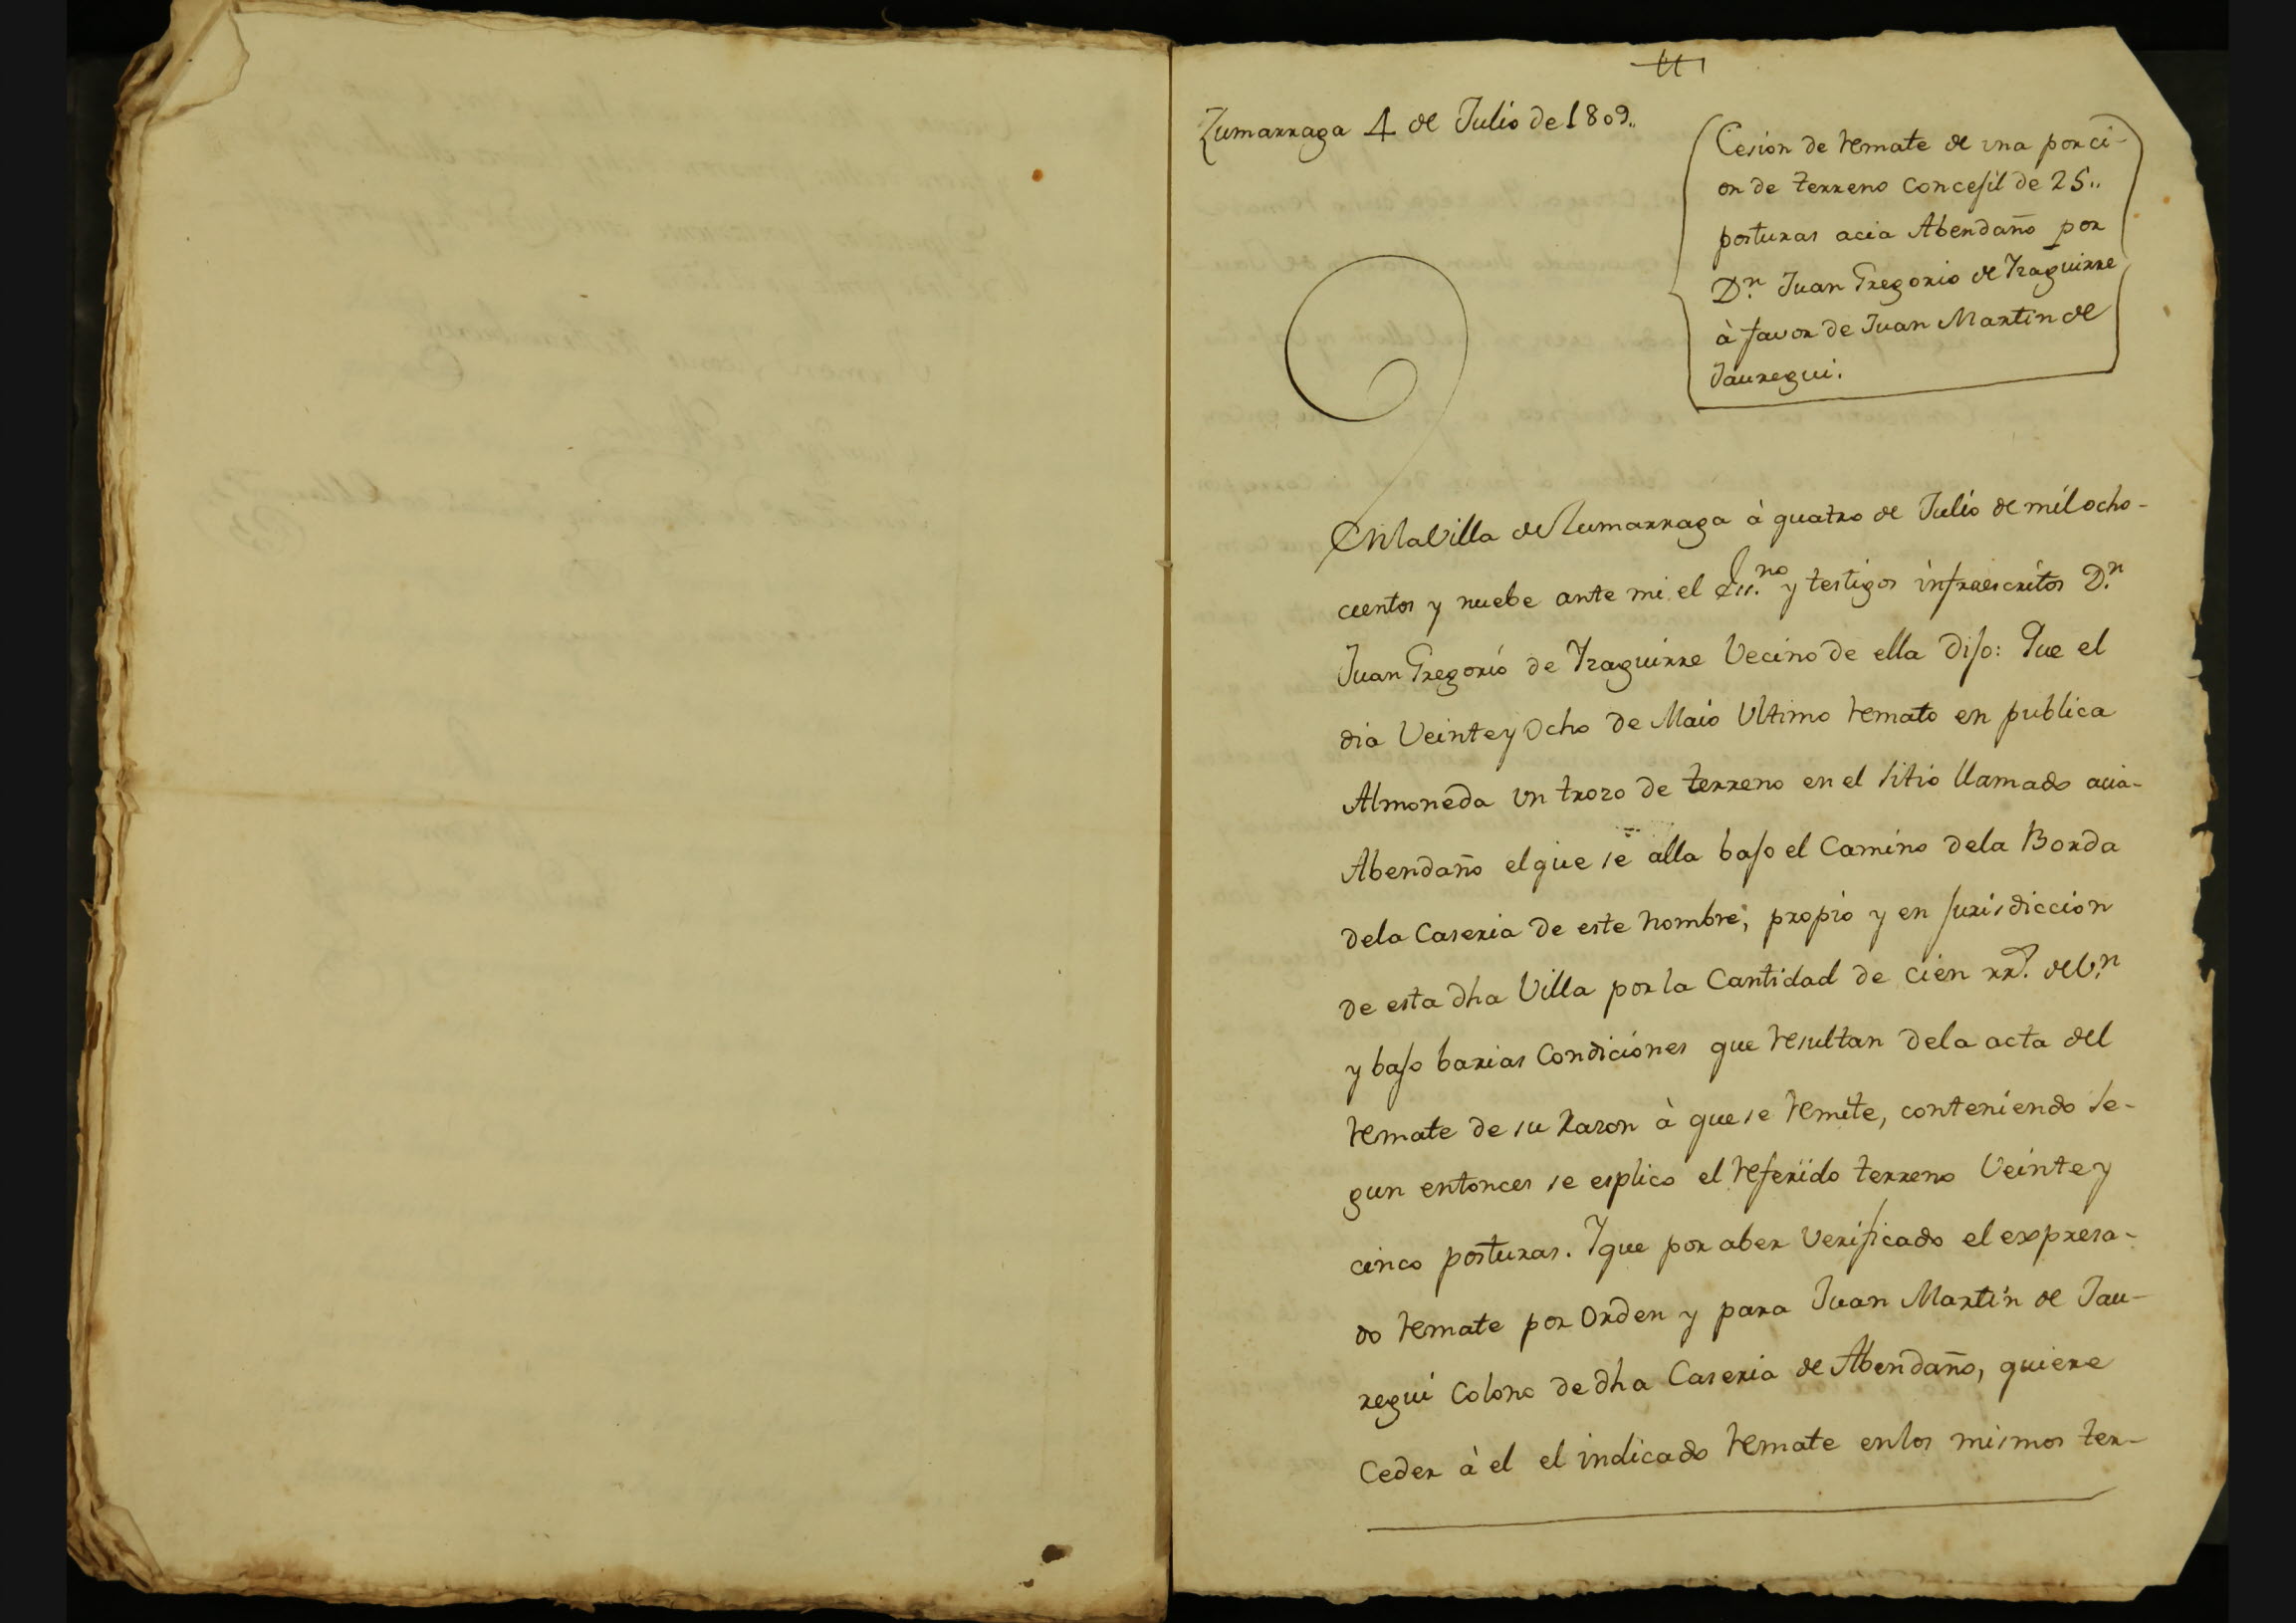 Zumarraga 4 de Julio de 1809.,
Cesion de remate de una porci-
on de terreno concejil de 25..
posturas acia Abendaño por
D.n Juan Gregorio de Yzaguirre
à favor de Juan Martin de
Jauregui.
En la Villa de Zumarraga à quatro de Julio de mil ocho-
cientos y nuebe ante mi el Ess.no y testigos infraescritos D.n
Juan Gregorio de Yzaguirre Vecino de ella dijo: Que el
dia Veinte y Ocho de Maio Ultimo remato en publica
Almoneda un trozo de terreno en el sitio llamado acia-
Abendaño el que se alla bajo el Camino dela Borda
dela Caseria de este nombre, propio y en jurisdiccion
de esta dha Villa por la Cantidad de cien rr.s de V.n
y bajo barias Condiciones que resultan dela acta del
remate de su razon à que se remite, conteniendo se-
gun entonces se esplico el referido terreno Veinte y
cinco posturas. Y que por aber Verificado el expresa-
do remate por Orden y para Juan Martin de Jau-
regui Colono de dha Caseria de Abendaño, quiere
Ceder à el el indicado remate en los mismos ter-